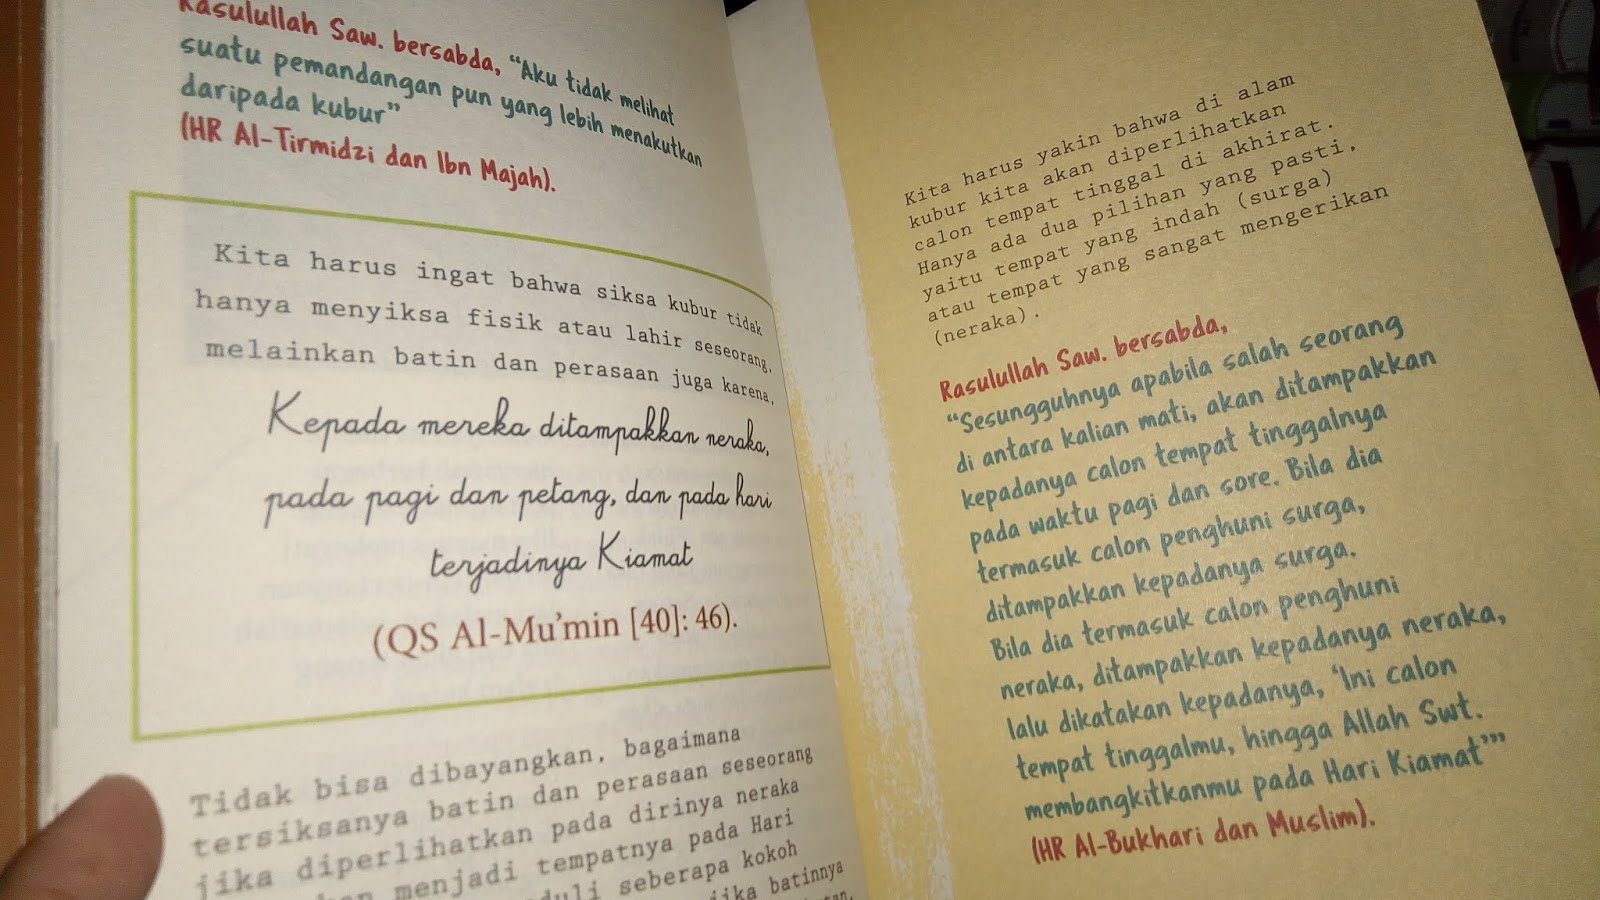 Rasulullah Saw. bersabda, “Aku tidak melihat
suatu pemandangan pun yang lebih menakutkan
daripada kubur”
(HR Al-Tirmidzi dan Ibn Majah).
Kita harus ingat bahwa siksa kubur tidak
hanya menyiksa fisik atau lahir seseorang,
melainkan batin dan perasaan juga karena,
Kepada mereka ditampakkan neraka,
pada pagi dan petang, dan pada hari
terjadinya Kiamat
(QS Al-Mu’min [40]: 46).
Tidak bisa dibayangkan, bagaimana
tersiksanya batin dan perasaan seseorang
jika diperlihatkan pada dirinya neraka
menjadi tempatnya pada Hari
seberapa kokoh
jika batinnya
Kita harus yakin bahwa di alam
kubur kita akan diperlihatkan
calon tempat tinggal di akhirat.
Hanya ada dua pilihan yang pasti,
yaitu tempat yang indah (surga)
atau tempat yang sangat mengerikan
(neraka).
Rasulullah Saw. bersabda,
“Sesungguhnya apabila salah seorang
di antara kalian mati, akan ditampakkan
kepadanya calon tempat tinggalnya
pada waktu pagi dan sore. Bila dia
termasuk calon penghuni surga,
ditampakkan kepadanya surga.
Bila dia termasuk calon penghuni
neraka, ditampakkan kepadanya neraka,
lalu dikatakan kepadanya, ‘Ini calon
tempat tinggalmu, hingga Allah Swt.
membangkitkanmu pada Hari Kiamat’”
(HR Al-Bukhari dan Muslim).